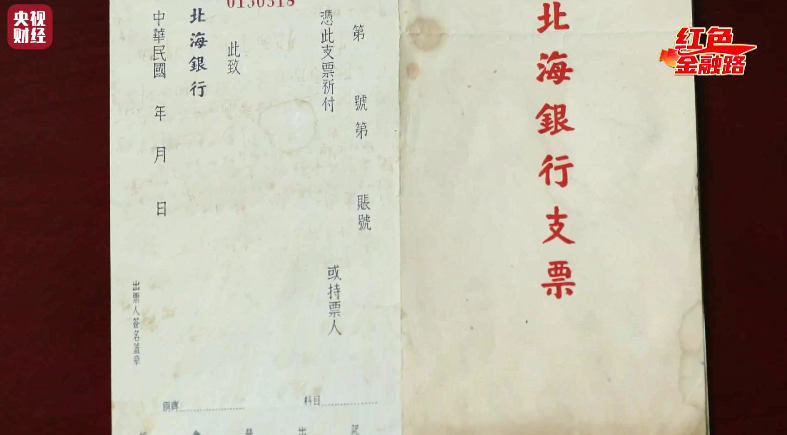 央视
财经
红色
金融路
北海銀行支票
0130318
第 號第 賬號
憑此支票祈付
或持票人
此致
北海銀行
中華民國 年 月 日
出票人簽名蓋章
科目